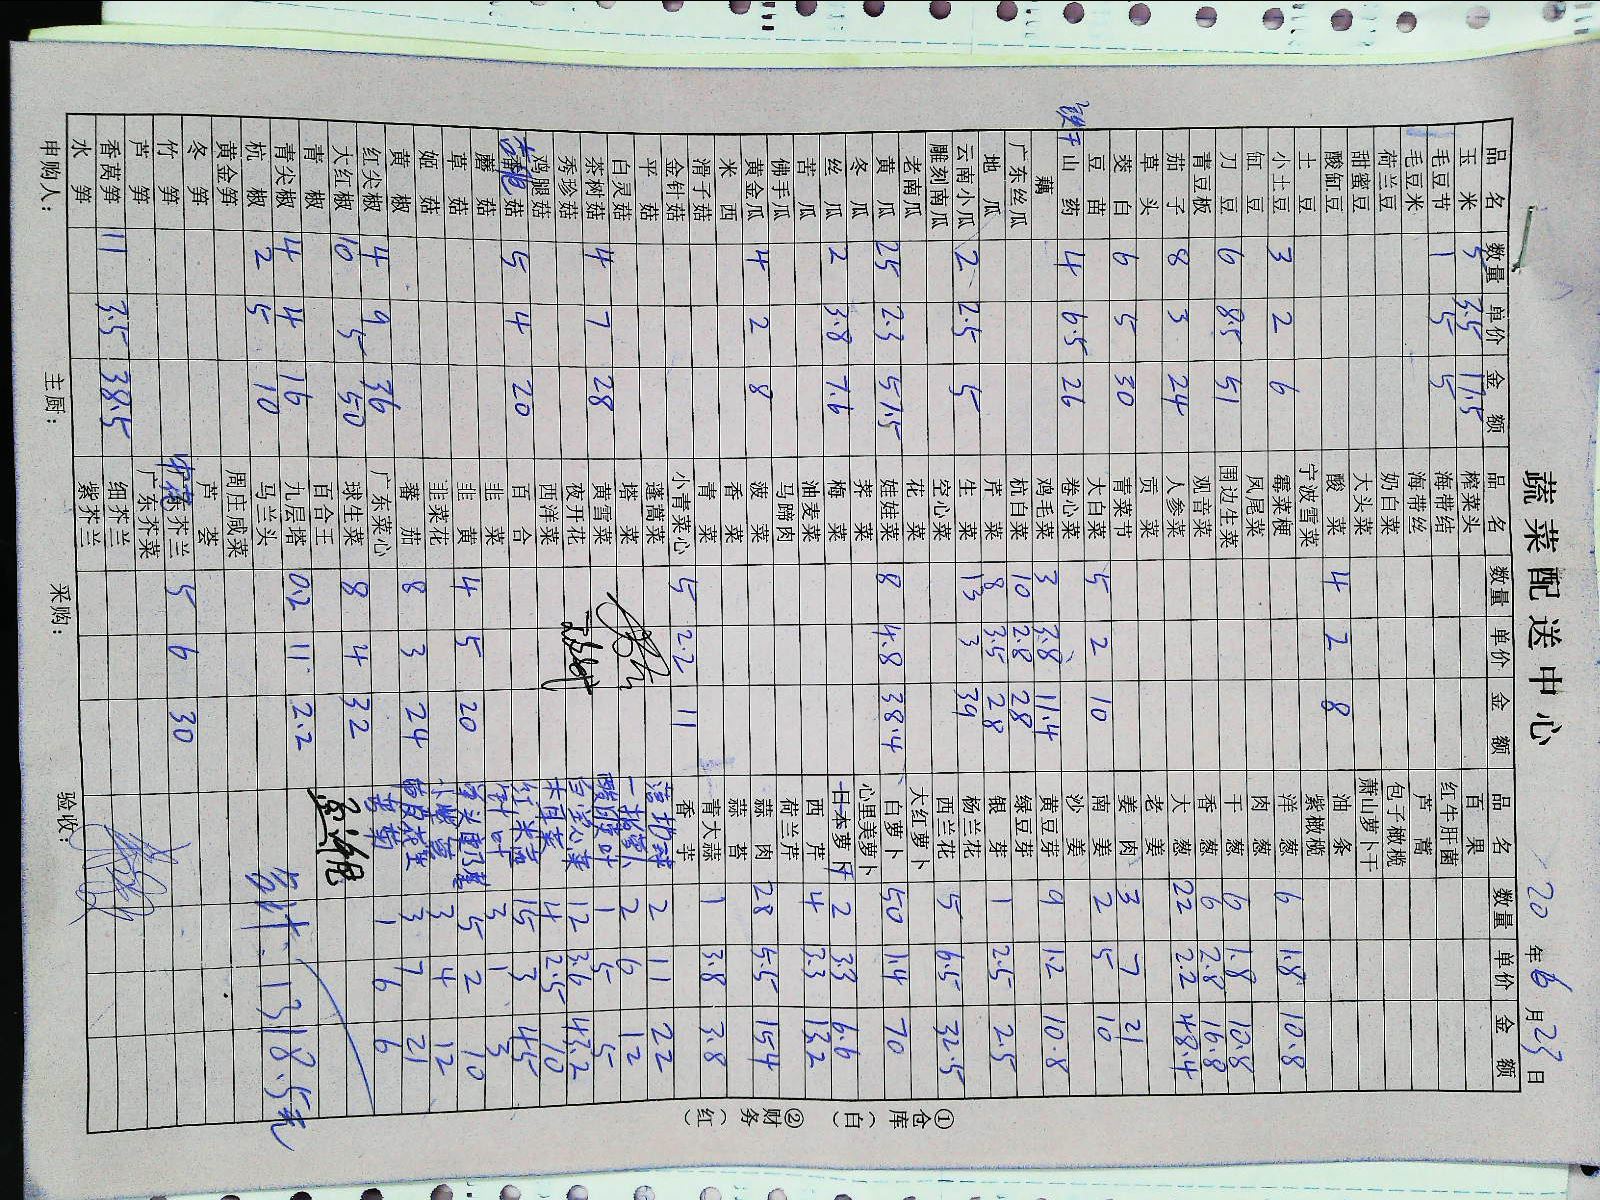 蔬菜配送中心
20 年 6 月 23 日
品名 数量 单价 金额 品名 数量 单价 金额 品名 数量 单价 金额
玉米 5 3.5 17.5 榨菜头 百果
毛豆节 1 5 5 海带结 红牛肝菌
毛豆米 海带丝 芦蒿
荷兰豆 奶白菜 包子橄榄
甜蜜豆 大头菜 萧山萝卜干
酸缸豆 酸菜 4 2 8 油条
土豆 宁波雪菜 紫橄榄
小土豆 3 2 6 霉菜梗 洋葱 6 1.8 10.8
缸豆 凤尾菜 肉葱
刀豆 6 8.5 51 围边生菜 干葱 6 1.8 10.8
青豆板 观音菜 香葱 6 2.8 16.8
茄子 8 3 24 人参菜 大葱 22 2.2 48.4
草头 贡菜 老姜
茭白 6 5 30 青菜节 姜肉 3 7 21
豆苗 大白菜 5 2 10 南姜 2 5 10
铁干山药 4 6.5 26 卷心菜 沙姜
藕 鸡毛菜 3 3.8 11.4 黄豆芽 9 1.2 10.8
广东丝瓜 杭白菜 10 2.8 28 绿豆芽
地瓜 芹菜 8 3.5 28 银芽 1 2.5 2.5
云南小瓜 2 2.5 5 生菜 13 3 39 杨兰花
雕刻南瓜 空心菜 西兰花 5 6.5 32.5
老南瓜 花菜 大红萝卜
黄瓜 25 2.3 57.5 娃娃菜 8 4.8 38.4 白萝卜 50 1.4 70
冬瓜 荠菜 心里美萝卜
丝瓜 2 3.8 7.6 梅菜 2 3.3 6.6
苦瓜 油麦菜 西芹 4 3.3 13.2
佛手瓜 马蹄肉 荷兰芹
黄金瓜 4 2 8 菠菜 蒜肉 28 5.5 154
米西 香菜 蒜苔
滑子菇 青菜 青大蒜 1 3.8 3.8
金针菇 小青菜心 5 2.2 11 香芋
平菇 蓬蒿菜 2 11 22
白灵菇 塔菜 一指萝卜 2 6 12
茶树菇 4 7 28 黄雪菜 1 5 5
秀珍菇 夜开花 空心菜 12 3.6 43.2
鸡腿菇 西洋菜 木耳菜 4 2.5 10
菇 5 4 20 百合 红米苋 15 3 45
蘑菇 韭菜 3 1 3
草菇 韭黄 4 5 20 5 2 10
姬菇 韭菜花 3 4 12
黄椒 蕃茄 8 3 24 3 7 21
红尖椒 4 9 36 广东菜心 1 6 6
大红椒 10 5 50 球生菜 8 4 32
青椒 百合王
青尖椒 4 4 16 九层塔 0.2 11 2.2
杭椒 2 5 10 马兰头 合计: 1318.5元
黄金笋 周庄咸菜
冬笋 芦荟
竹笋 芥兰 5 6 30
芦笋 广东芥菜
香莴笋 11 3.5 38.5 细芥兰
水笋 紫芥兰
申购人: 主厨: 采购: 验收:
①仓库(白) ②财务(红)